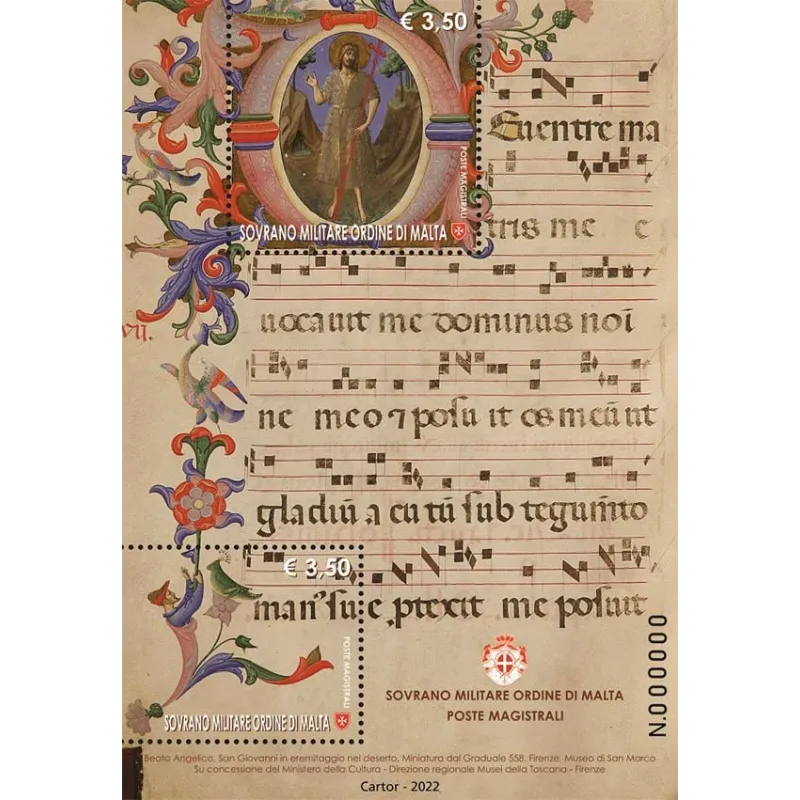 € 3,50
POSTE MAGISTRALI
SOVRANO MILITARE ORDINE DI MALTA
uentre ma
tris me e
uocauit me dominus noi
vii.
ne meo ⁊ posu it os meū ut
gladiū a cu tū sub tegumto
€ 3,50
man' su e ptexit me posuit
POSTE MAGISTRALI
SOVRANO MILITARE ORDINE DI MALTA
SOVRANO MILITARE ORDINE DI MALTA
POSTE MAGISTRALI
N.000000
Beato Angelico, San Giovanni in eremitaggio nel deserto, Miniatura dal Graduale 558, Firenze, Museo di San Marco
Su concessione del Ministero della Cultura - Direzione regionale Musei della Toscana - Firenze
Cartor - 2022